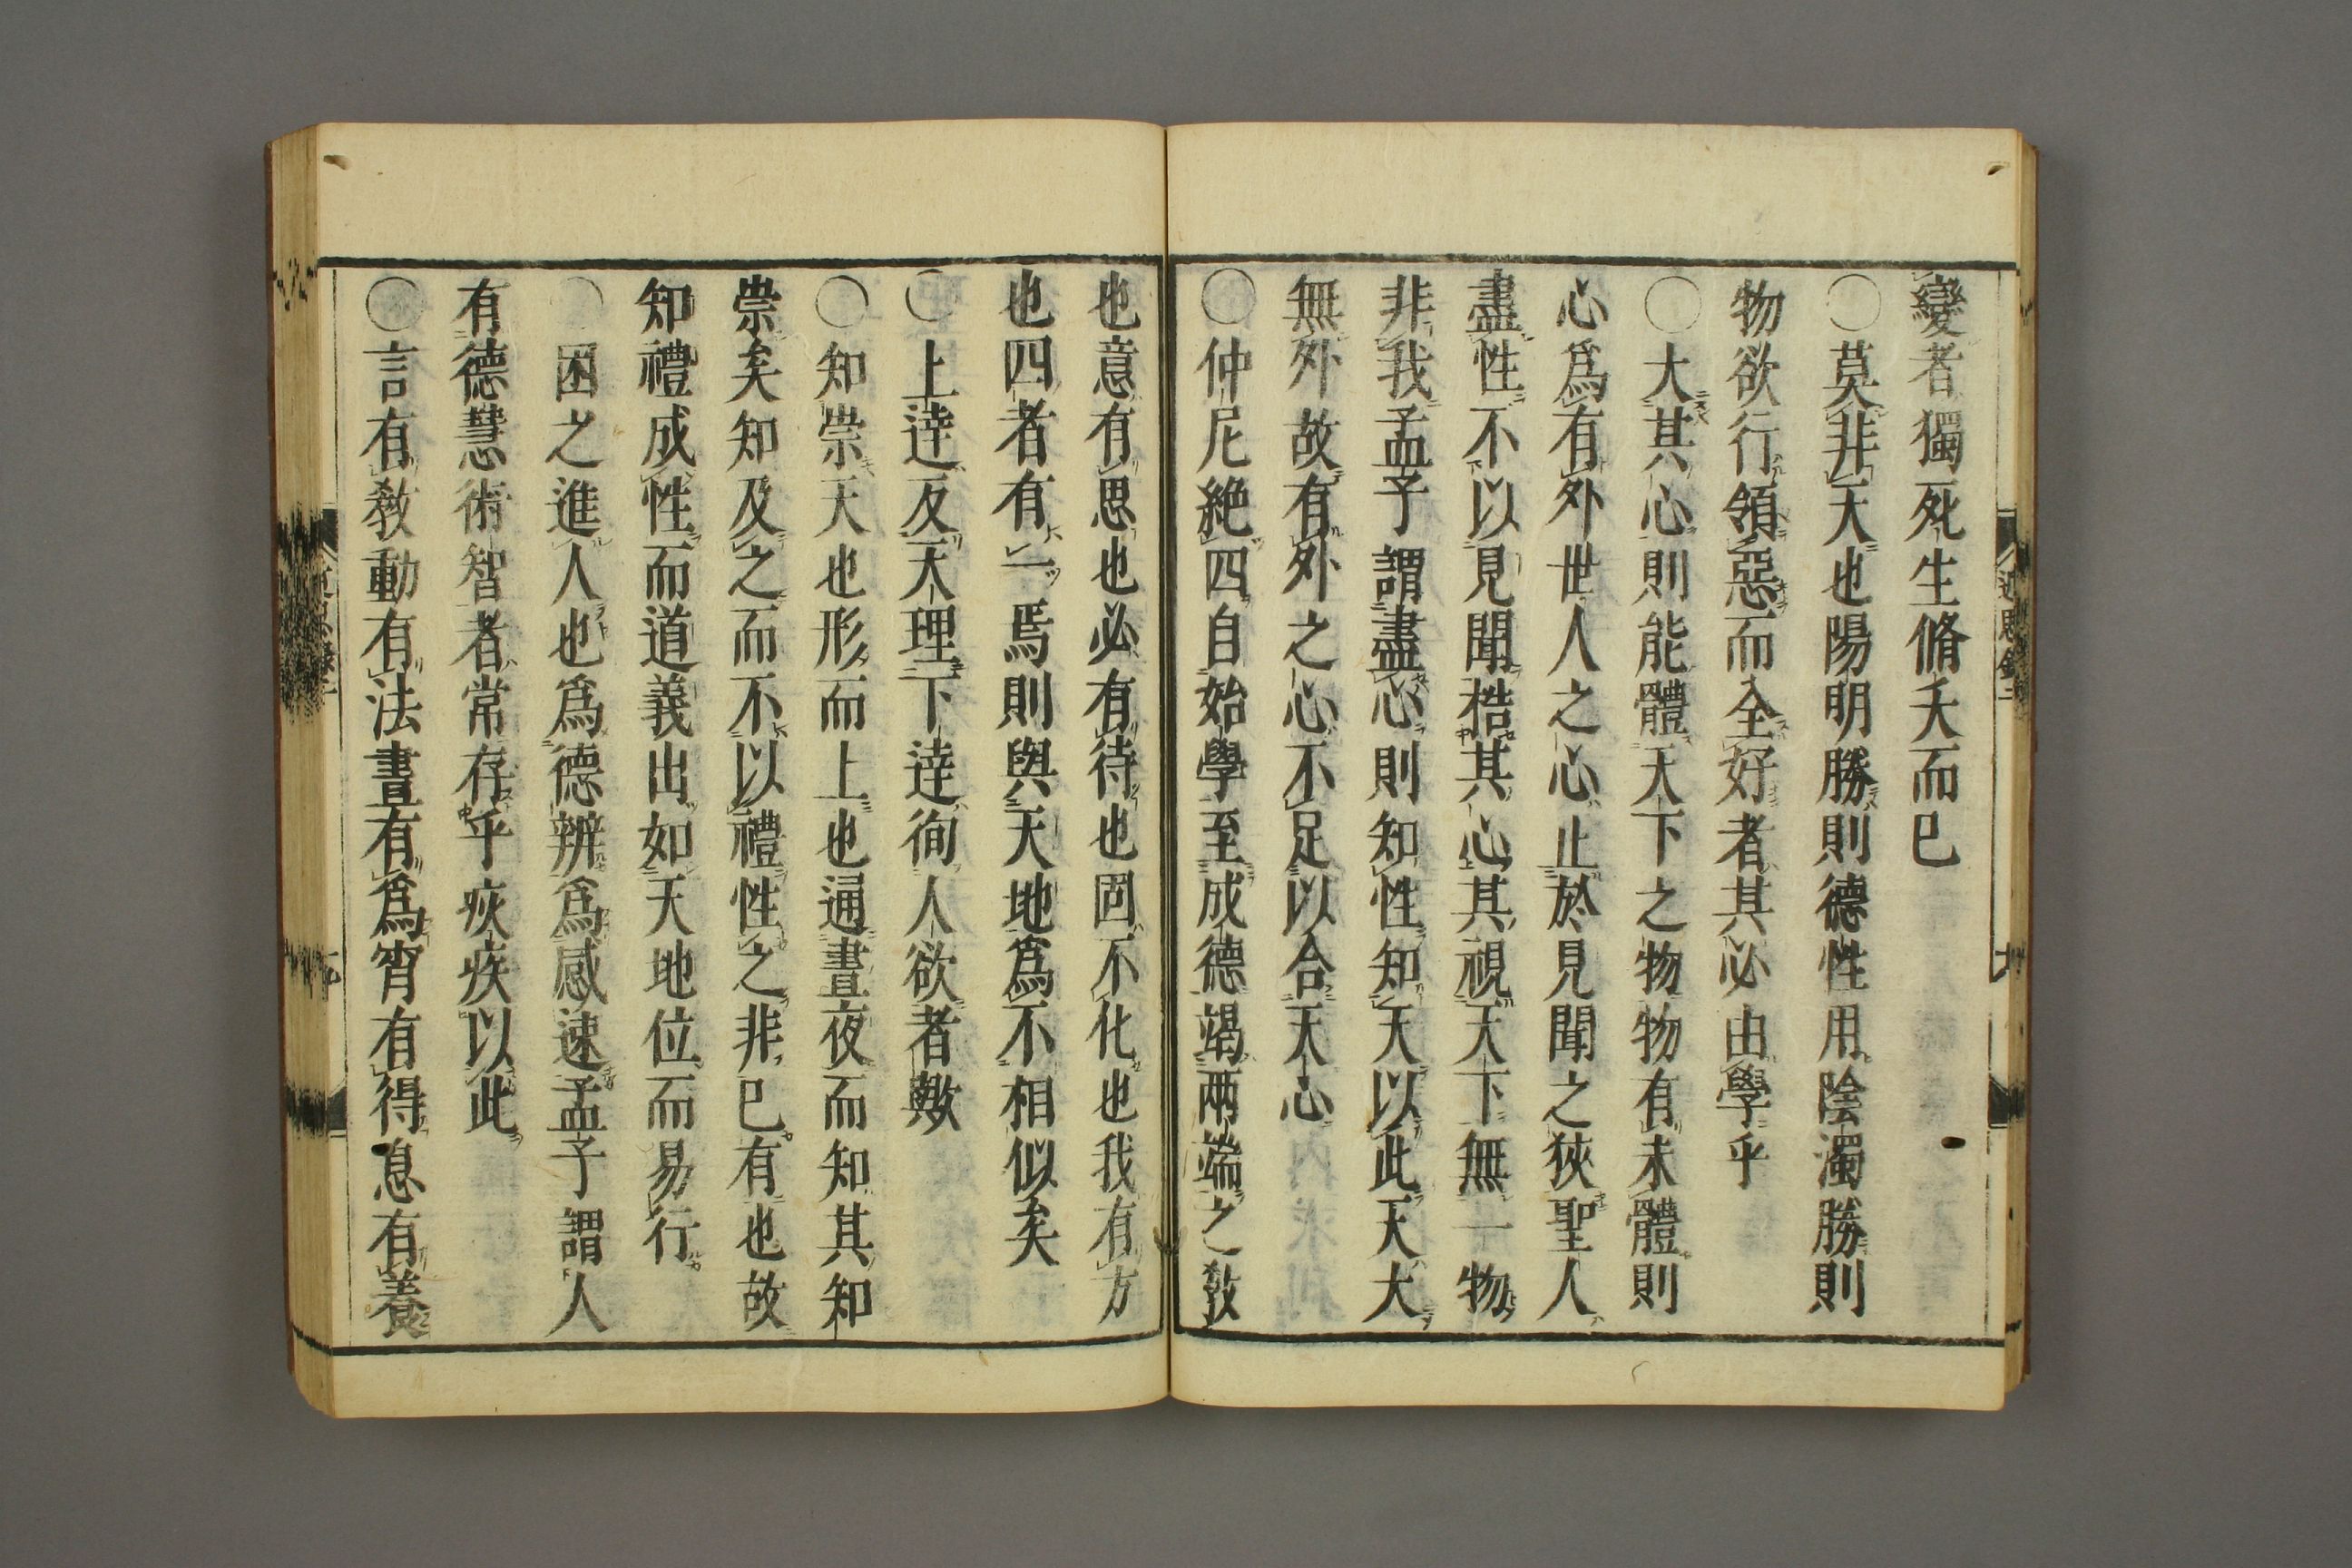 變者獨死生脩夭而已
〇莫非天也陽明勝則德性用陰濁勝則
物欲行領惡而全好者其必由學乎
〇大其心則能體天下之物物有未體則
心爲有外世人之心止於見聞之狹聖人
盡性不以見聞梏其心其視天下無一物
非我孟子謂盡心則知性知天以此天大
無外故有外之心不足以合天心
〇仲尼絶四自始學至成德竭兩端之敎
也意有思也必有待也固不化也我有方
也四者有一焉則與天地爲不相似矣
〇上達反天理下達徇人欲者歟
〇知崇天也形而上也通晝夜而知其知
崇矣知及之而不以禮性之非己有也故
知禮成性而道義出如天地位而易行
〇困之進人也爲德辨爲感速孟子謂人
有德慧術智者常存乎疢疾以此
〇言有敎動有法晝有爲宵有得息有養
近思録二